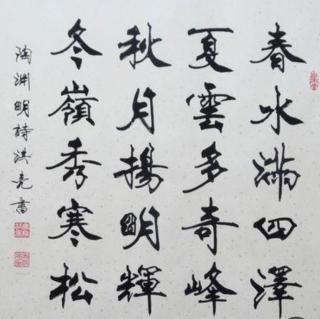 春水满四澤
夏雲多奇峰
秋月揚明輝
冬嶺秀寒松
陶渊明詩洪亮書